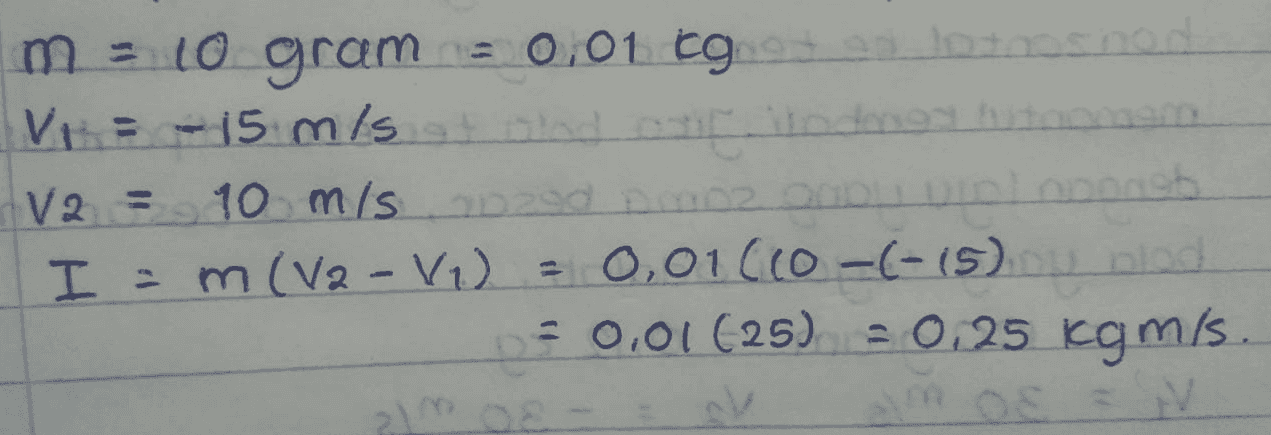 m = 10 gram = 0,01 kg
V1 = -15 m/s
V2 = 10 m/s
I = m (V2 - V1) = 0,01 (10 -(-15)
= 0,01 (25) = 0,25 kg m/s.